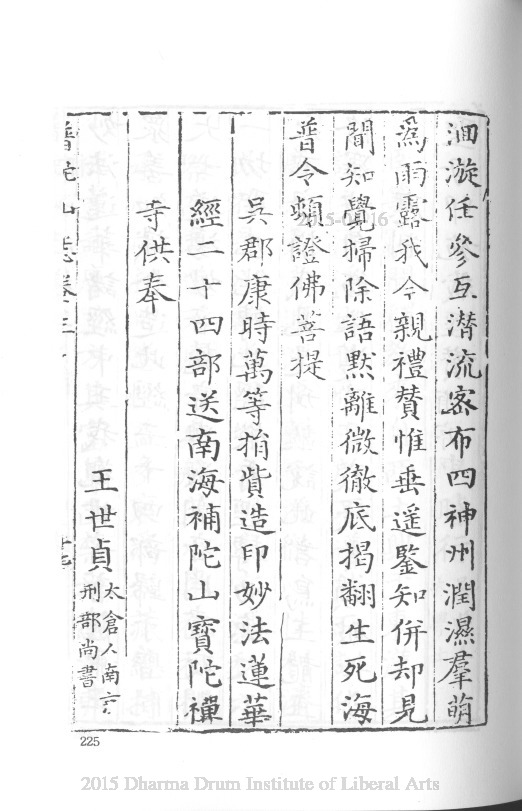 洄漩任參互潛流密布四神州潤濕羣萌
為雨露我今親禮贊惟垂遥鑒知併却見
聞知覺掃除語默離微徹底揭翻生死海
普令頓證佛菩提
吳郡康時萬等捐貲造印妙法蓮華
經二十四部送南海補陀山寶陀禪
寺供奉
王世貞
太倉人南京
刑部尚書
普陀山志卷三
225
2015 Dharma Drum Institute of Liberal Arts